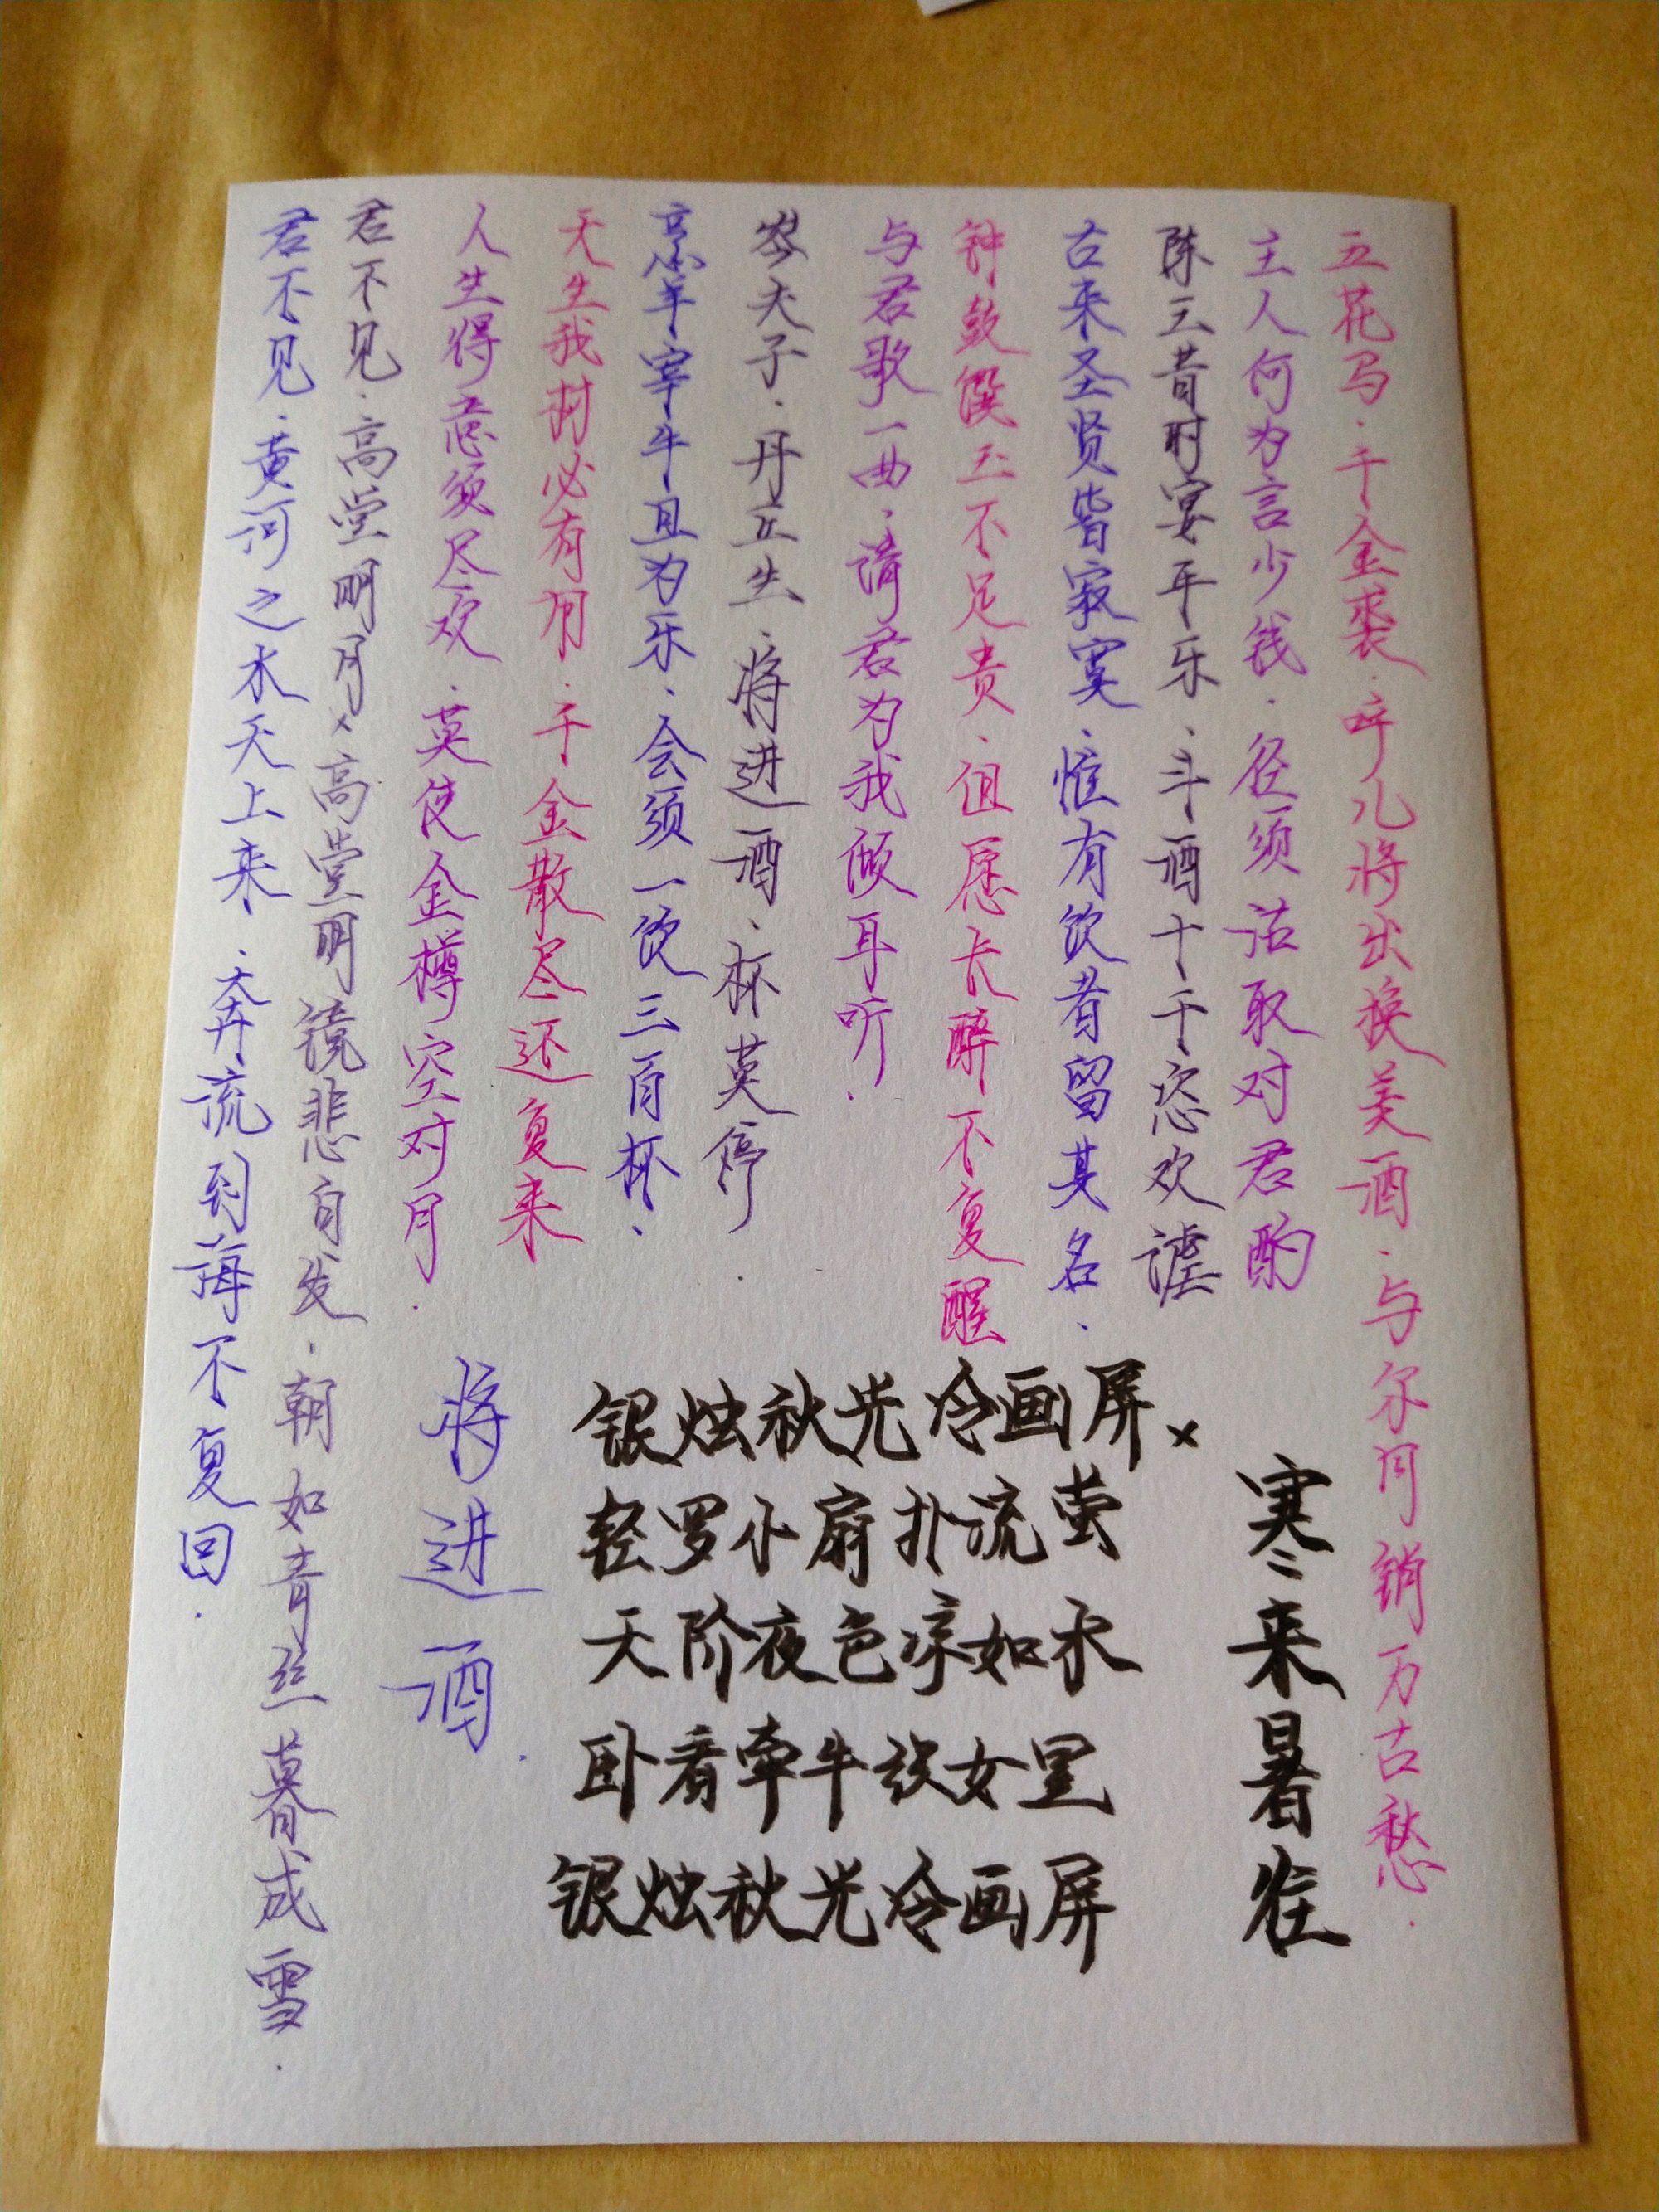 君不见·黄河之水天上来·奔流到海不复回·
君不见·高堂明月×高堂明镜悲白发·朝如青丝暮成雪·
人生得意须尽欢·莫使金樽空对月·
天生我材必有用·千金散尽还复来
烹羊宰牛且为乐·会须一饮三百杯·
岑夫子·丹丘生·将进酒·杯莫停·
与君歌一曲·请君为我倾耳听·
钟鼓馔玉不足贵·但愿长醉不复醒
古来圣贤皆寂寞·惟有饮者留其名·
陈王昔时宴平乐·斗酒十千恣欢谑
主人何为言少钱·径须沽取对君酌
五花马·千金裘·呼儿将出换美酒·与尔同销万古愁·
将进酒·
银烛秋光冷画屏×
轻罗小扇扑流萤
天阶夜色凉如水
卧看牵牛织女星
银烛秋光冷画屏
寒来暑往